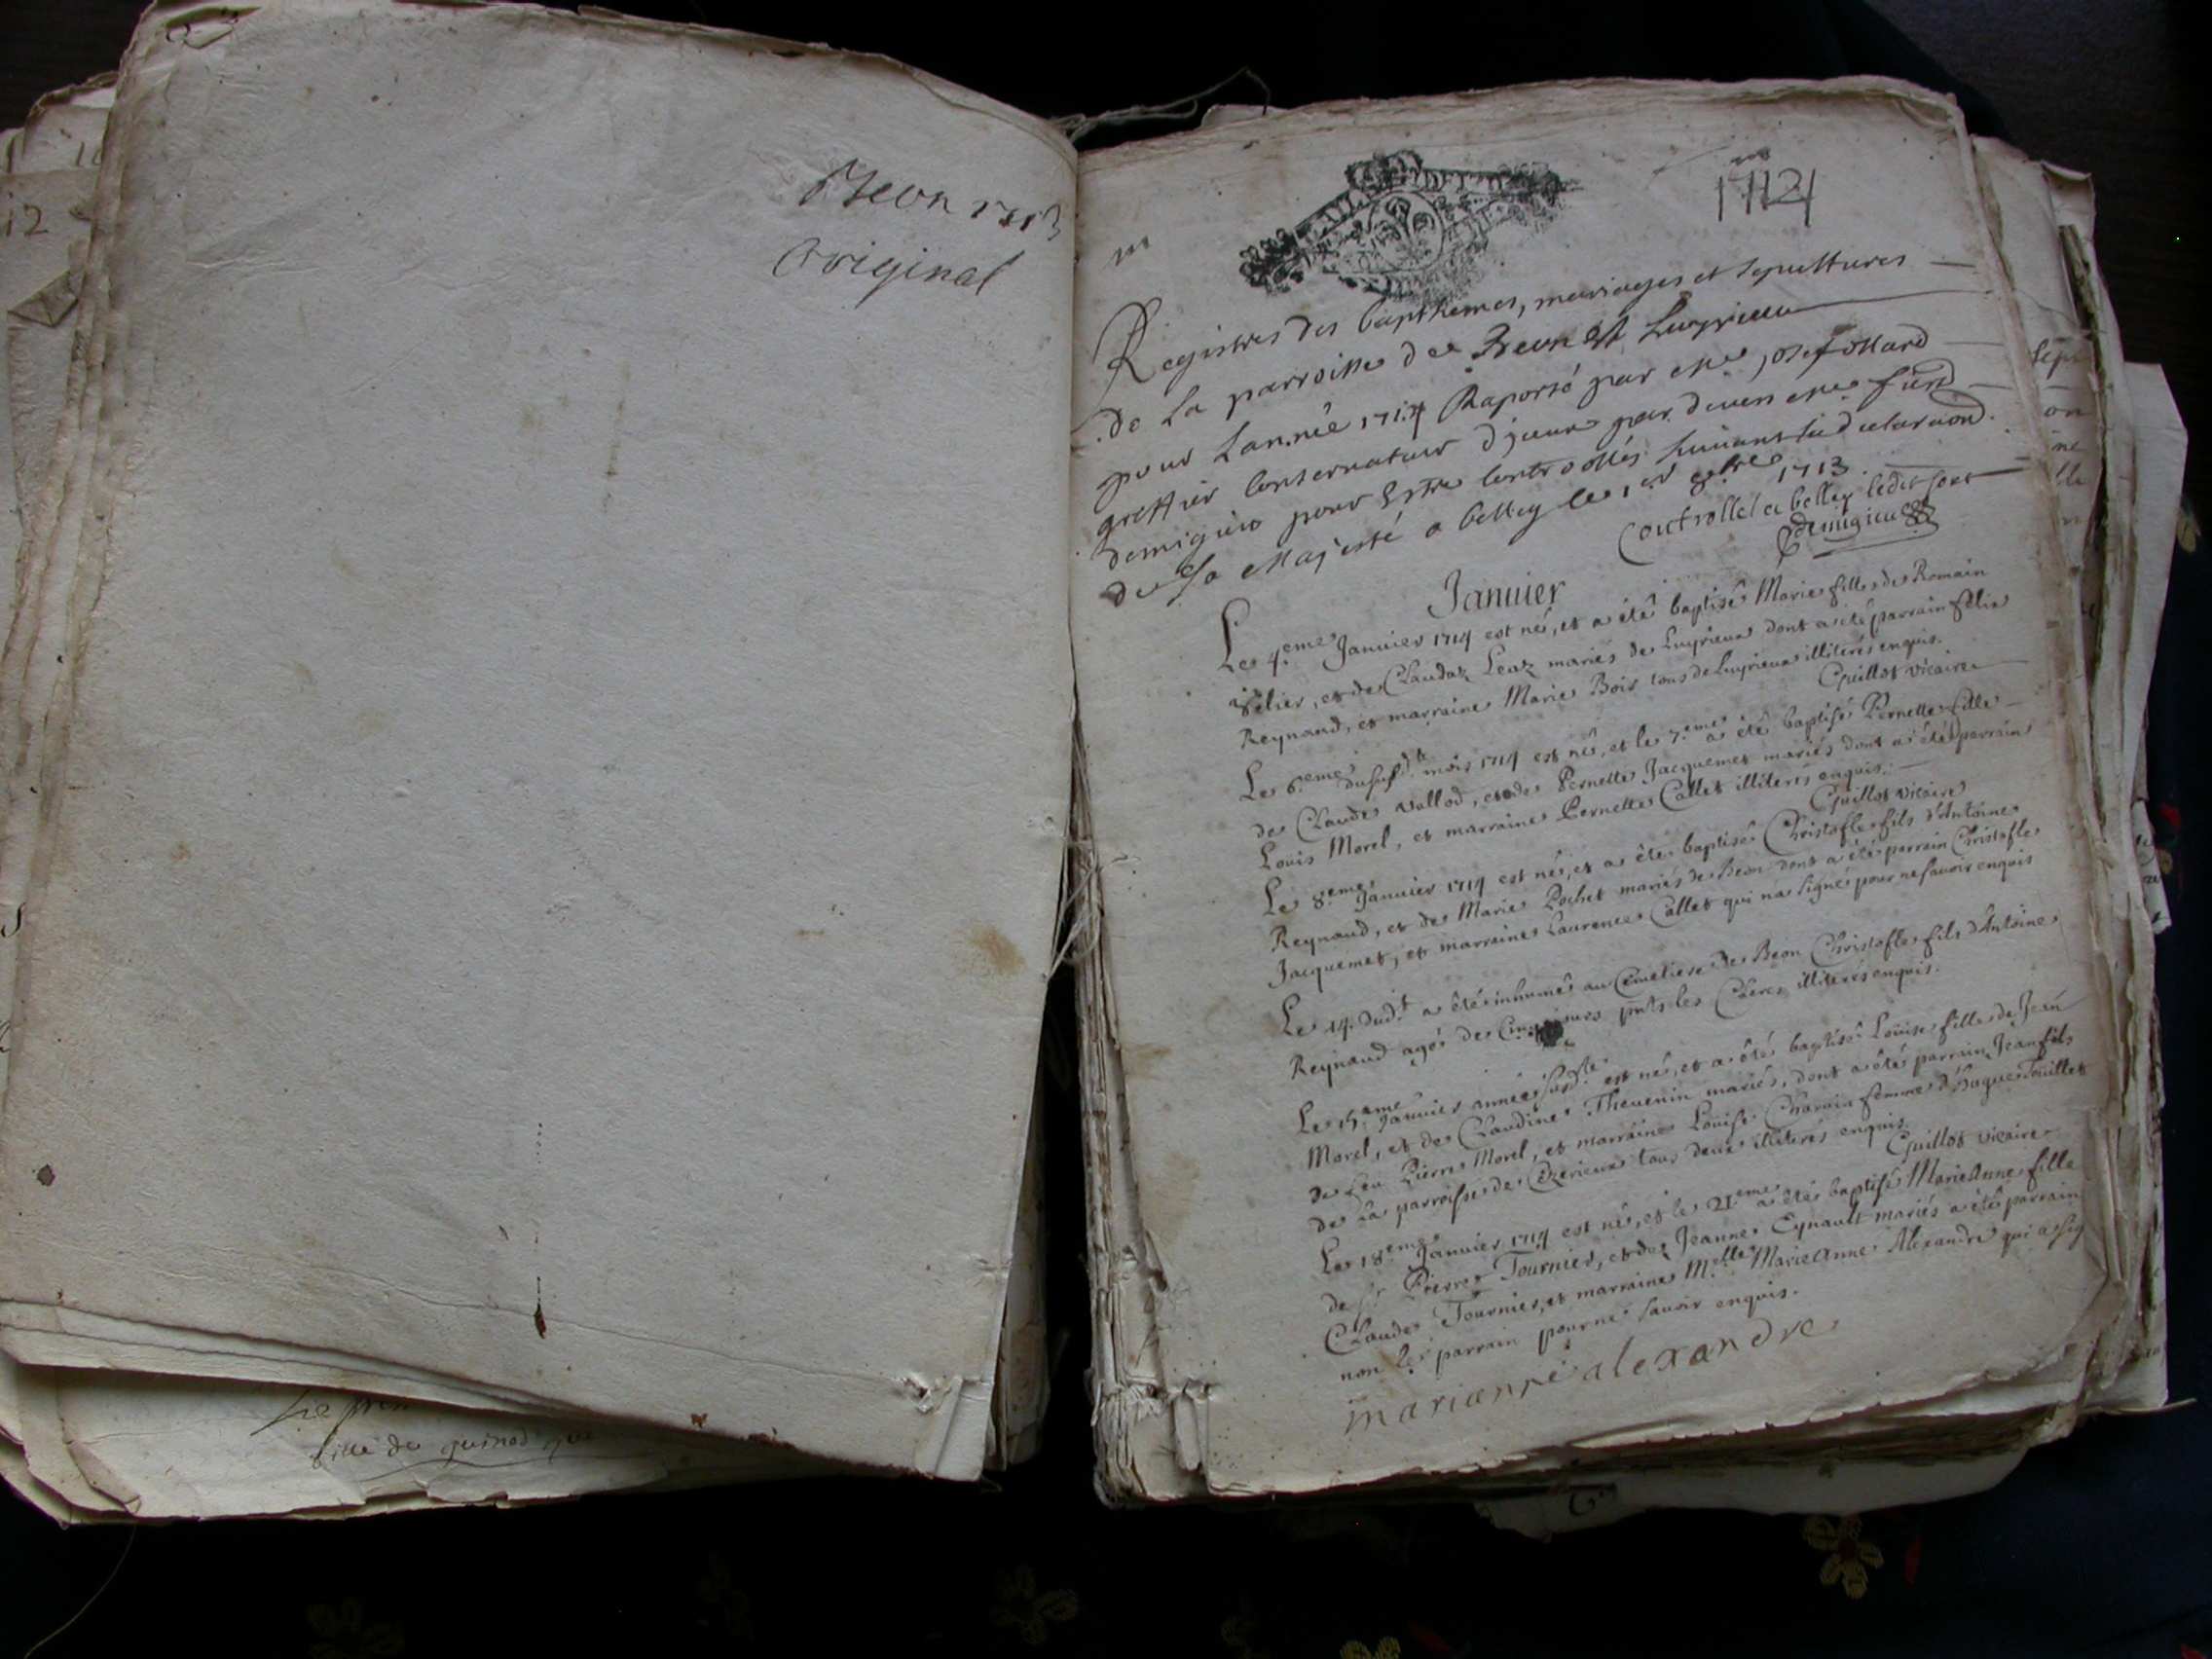 Beon 1713
Original
m
1714
Registres des bapthemes, mariages et sepultures
de La parroisse de Beon Et Luyrieux
pour Lannée 1714 Raporté par me josef ollard
greffier Conservateur d'jceux par devers me
demigieu pour Estre Controollés suivant la declaraõn
de Sa Majesté a belley le 1er 8bre 1713.
Controllé a belley ledit jour
Demigieu
Janvier
Le 4.eme Janvier 1714 est né, et a été baptisé Marie fille de Romain
et de Claudaz Leaz mariés de Luyrieux dont a été parrain felix
Reynaud, et marraine Marie Bois tous de Luyrieux illiterés enquis.
Guillot vicaire
Le 6.eme dususd.te mois 1714 est né, et le 7.eme a été baptisé Pernette fille
de Claude vallod, et de Pernette Jacquemet mariés dont a été parrain
Louis Morel, et marraine Pernette Callet illiterés enquis.
Guillot vicaire
Le 8.eme Janvier 1714 est né, et a été baptisé Christofle fils d'Antoine
Reynaud, et de Marie Pochet mariés de Beon dont a été parrain Christofle
Jacquemet, et marraine Laurence Callet qui na signé pour ne savoir enquis
Le 14. dud.t a été inhumé au Cemetiere de Beon Christofle fils d'Antoine
Reynaud agé de Cinq jours pnts les Cleres illiterés enquis.
Le 15.eme Janvier année susd.te est né, et a été baptisé Louise fille de Jean
Morel, et de Claudine Thevenin mariés, dont a été parrain Jean fils
de feu Pierre Morel, et marraine Louise Charvin femme d'hugue Touillet
de la parroisse de Ceizerieux tous deux illiterés enquis.
Guillot vicaire
Le 18.eme Janvier 1714 est né, et le 21.eme a été baptisé Marieanne fille
de Sr Pierre Tournier, et de Jeanne Eynault mariés a été parrain
Claude Tournier, et marraine M.elle Marieanne Alexandre qui a sig
non le parrain pour ne savoir enquis.
marianne alexandre
fille de guinod